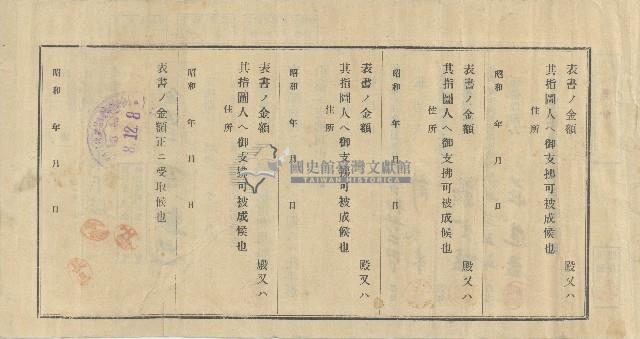 表書ノ金額　殿又ハ
其指圖人ヘ御支拂可被成候也
住所
昭和　年　月　日
表書ノ金額　殿又ハ
其指圖人ヘ御支拂可被成候也
住所
昭和　年　月　日
表書ノ金額　殿又ハ
其指圖人ヘ御支拂可被成候也
住所
昭和　年　月　日
表書ノ金額　殿又ハ
其指圖人ヘ御支拂可被成候也
住所
昭和　年　月　日
表書ノ金額正ニ受取候也
昭和　年　月　日
8.12.8
國史館臺灣文獻館
TAIWAN HISTORICA